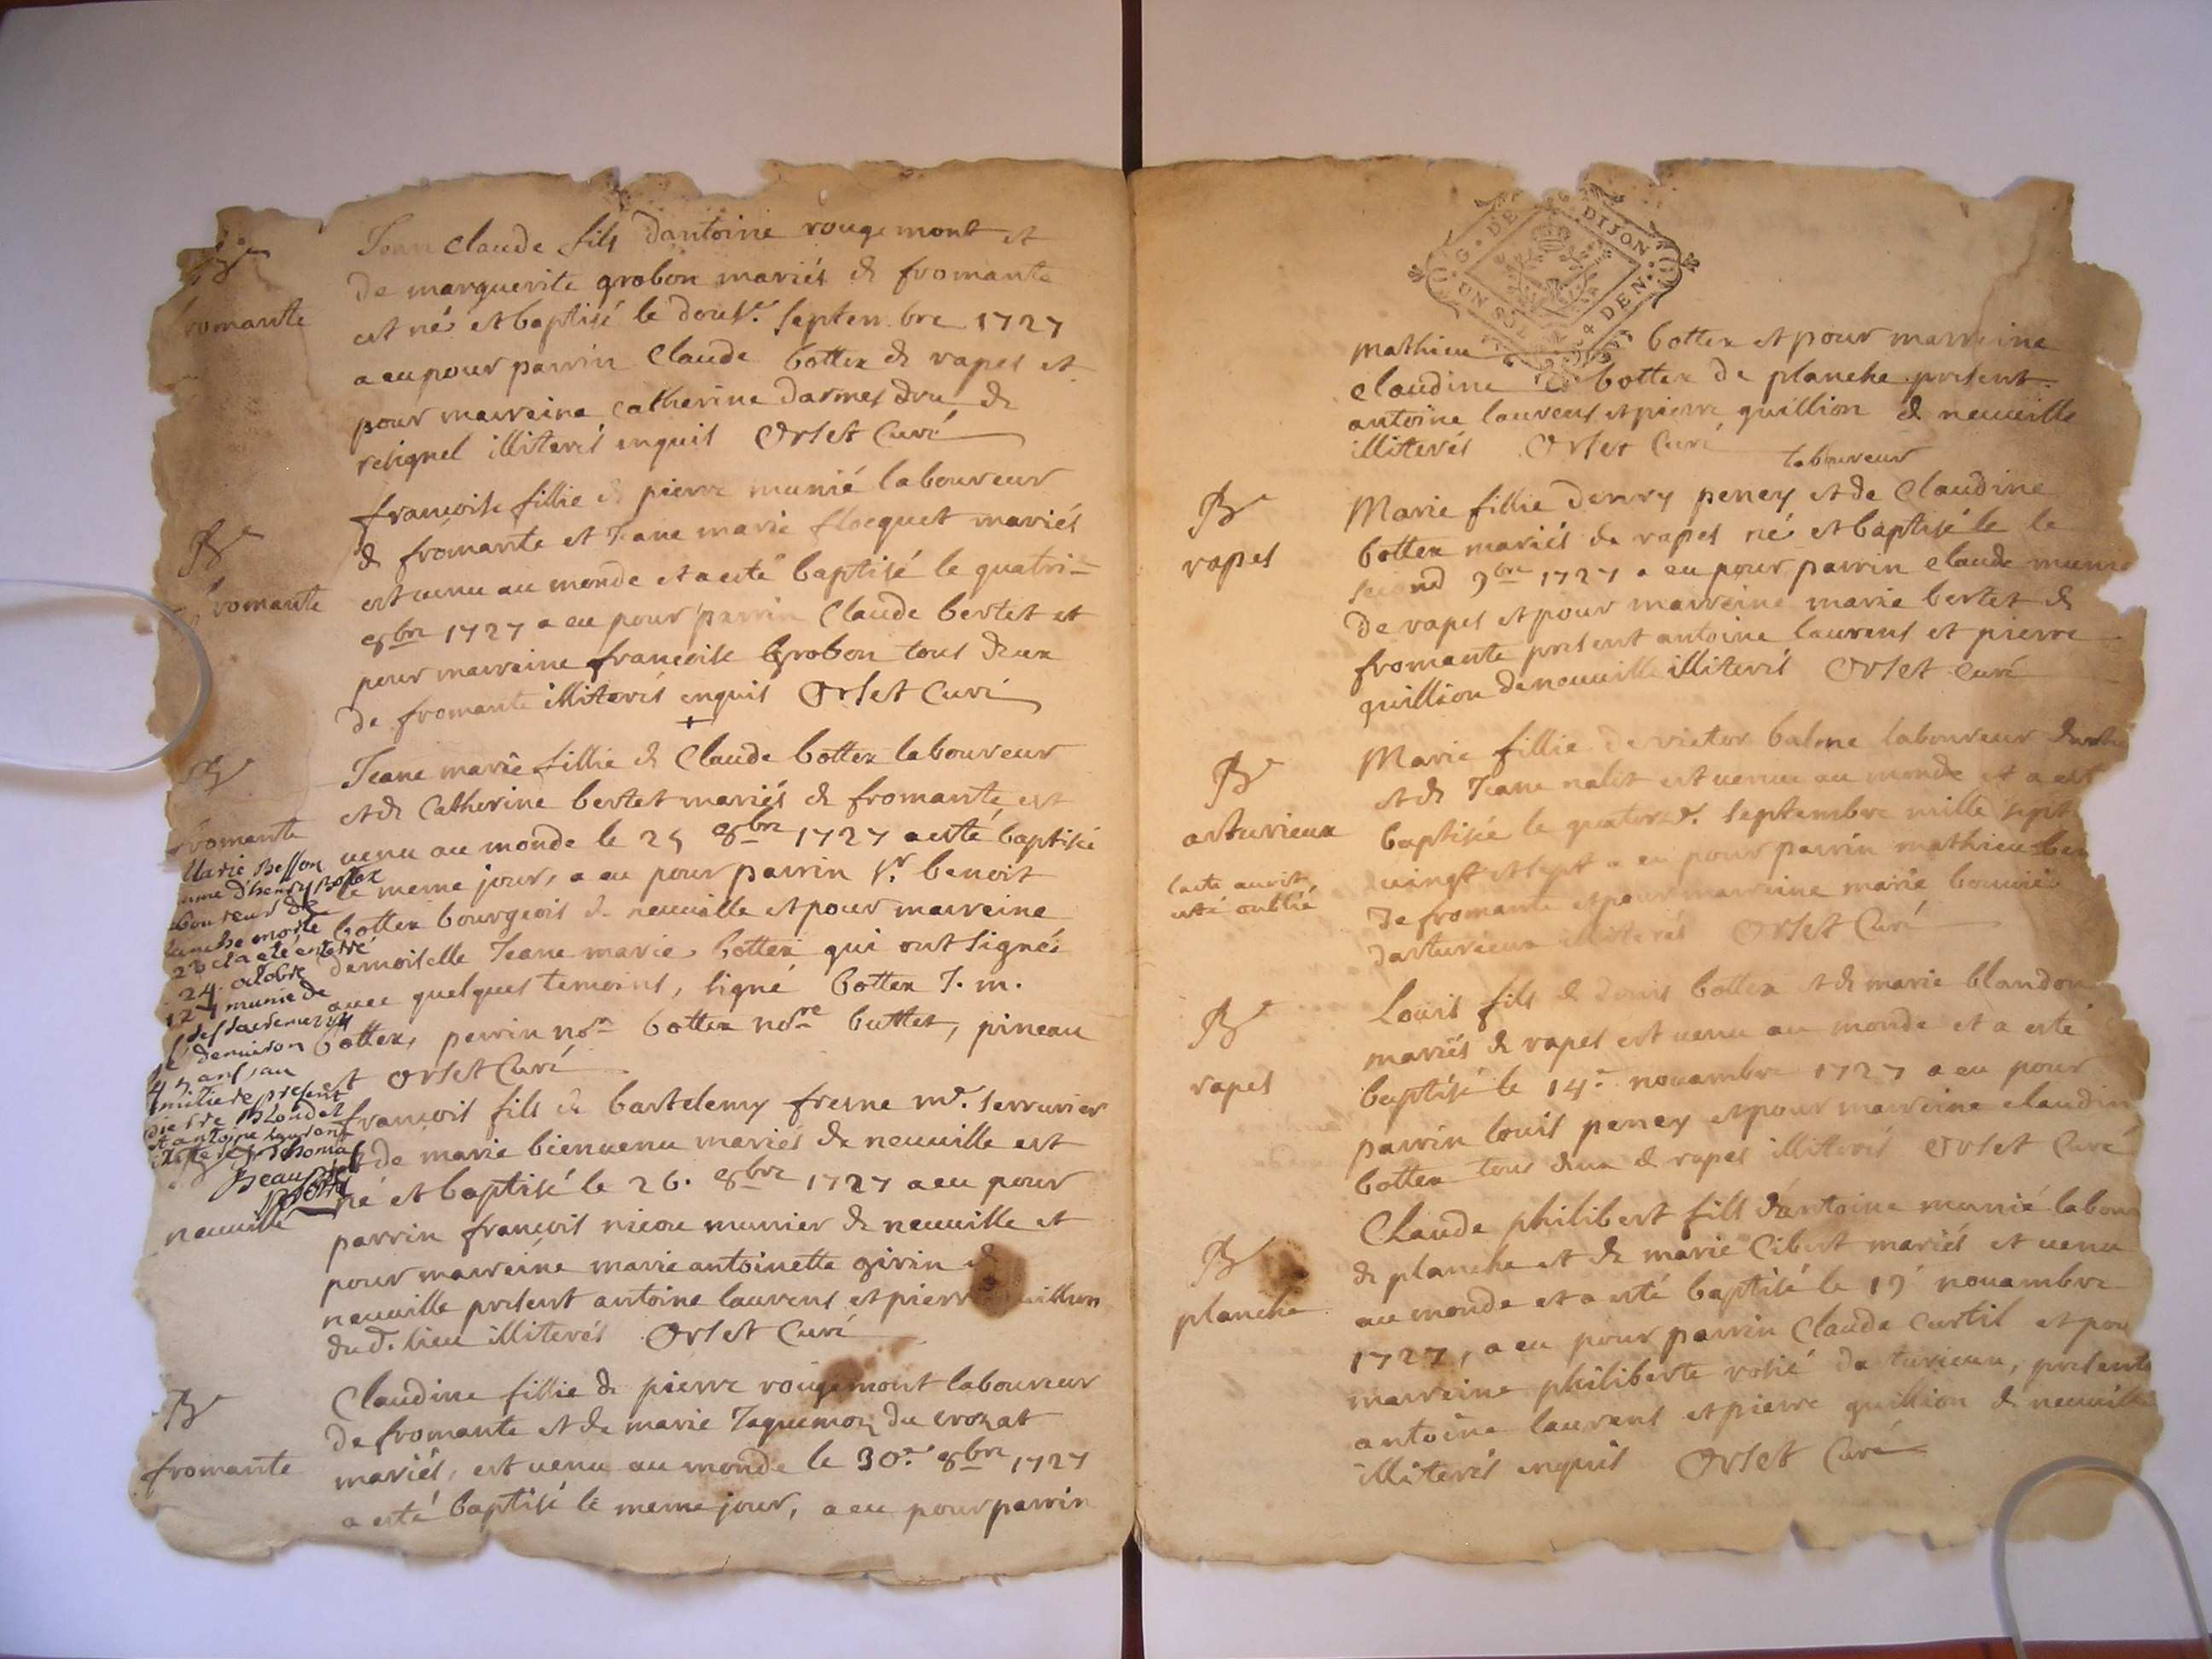 Be
romante
Jean claude fils dantoine rougemont et
de marguerite grobon mariés de fromante
est né et baptisé le douze. septembre 1727
a eu pour parrin Claude bottex de rapes et
pour marreine catherine darmes dru de
resignel illiterés enquis Orset Curé
Be
fromante
francoise fillie de pierre munié laboureur
de fromante et Jeane marie flocquet mariés
est venu au monde et a esté baptisé le quatri=
8bre 1727 a eu pour parrin Claude bertet et
pour marreine francoise Grobon tous deux
de fromante illiterés enquis Orset Curé
Be
fromante
Jeane marie fillie de Claude bottex laboureur
et de Catherine bertet mariés de fromante est
venu au monde le 25 8bre 1727 a esté baptisée
le meme jour, a eu pour parrin Sr. benoit
bottex bourgeois de neuville et pour marreine
demoiselle Jeane marie bottex qui ont signés
avec quelques temoins, signé bottex J. m.
bottex, perrin nore bottex nore buttet, pineau
et Orset Curé
Marie Besson
d'henry Bottex
boureur de
planche morte
23 et a eté enterré
24. octobre
munie de
des sacremens
demiron
45 ans, au
cimitiere present
pierre Blondet
et antoine Laurent
Thomas
Beau
neuville
francois fils de bartelemy fresne md. serrurier
et de marie bienvenu mariés de neuville est
né et baptisé le 26. 8bre 1727 a eu pour
parrin francois nicou munier de neuville et
pour marreine marie antoinette girin de
neuville present antoine laurens et pierre quillion
dud. lieu illiterés Orset Curé
Be
fromante
Claudine fillie de pierre rougemont laboureur
de fromante et de marie Jaquemoz du crozat
mariés, est venu au monde le 30e. 8bre 1727
a esté baptisé le meme jour, a eu pour parrin
G. DE DIJON
UN SOL 4 DEN.
mathieu bottex et pour marreine
claudine bottex de planche present
antoine laurens et pierre quillion de neuville
illiterés Orset Curé
laboureur
Be
rapes
Marie fillie denry peney et de Claudine
bottex mariés de rapes né et baptisé le le
second 9bre 1727 a eu pour parrin claude munie
de rapes et pour marreine marie bertet de
fromante present antoine laurens et pierre
quillion de neuville illiterés Orset Curé
Be
arturieux
l'acte auoit
esté oublié
Marie fillie de victor balme laboureur
et de Jeane nalet est venue au monde et a esté
baptisée le quatorze. septembre mille sept
vingt et sept a eu pour parrin mathieu
de fromante et pour marreine marie bouvié
darturieux illiterés Orset Curé
Be
rapes
Louis fils de denis bottex et de marie blandon
mariés de rapes est venu au monde et a esté
baptisé le 14e. novambre 1727 a eu pour
parrin louis peney et pour marreine claudine
bottex tous deux de rapes illiterés Orset Curé
Be
planche
Claude philibert fils d'antoine munié labou
de planche et de marie Cibert mariés et venu
au monde et a esté baptisé le 19e novambre
1727, a eu pour parrin Claude Curtil et pou
marreine philiberte rosié darturieux, presents
antoine laurens et pierre quillion de neuville
illiterés enquis Orset Curé